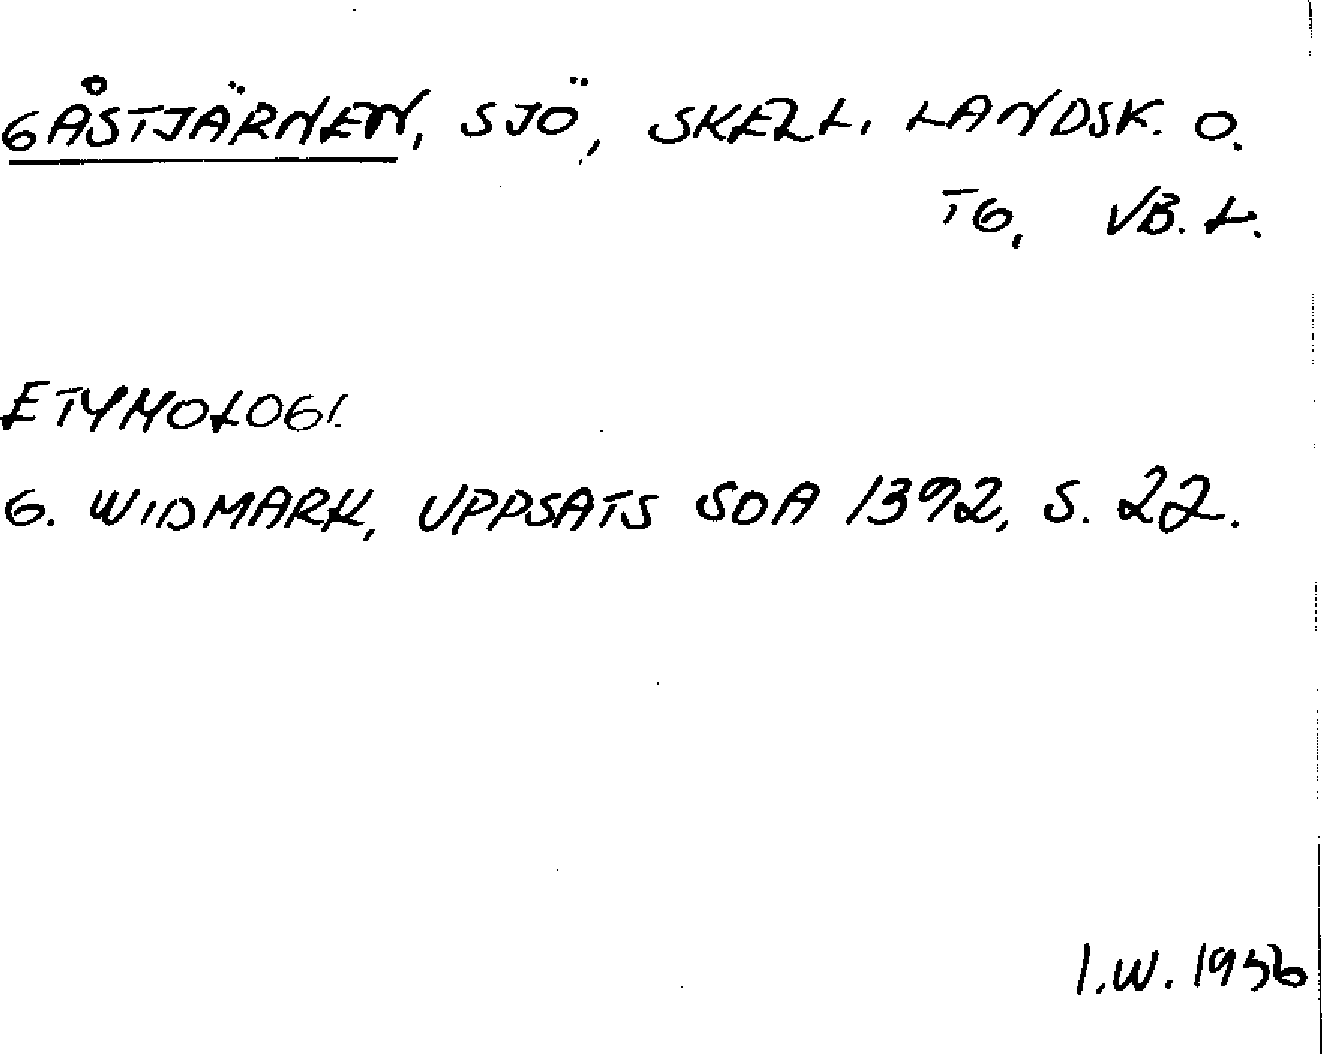 GÅSTJÄRNEN, SJÖ, SKELL. LANDSK. O.
TG, VB. L.
ETYMOLOGI.
G. WIDMARK, UPPSATS SOA 1392, S. 22.
I.W. 1956